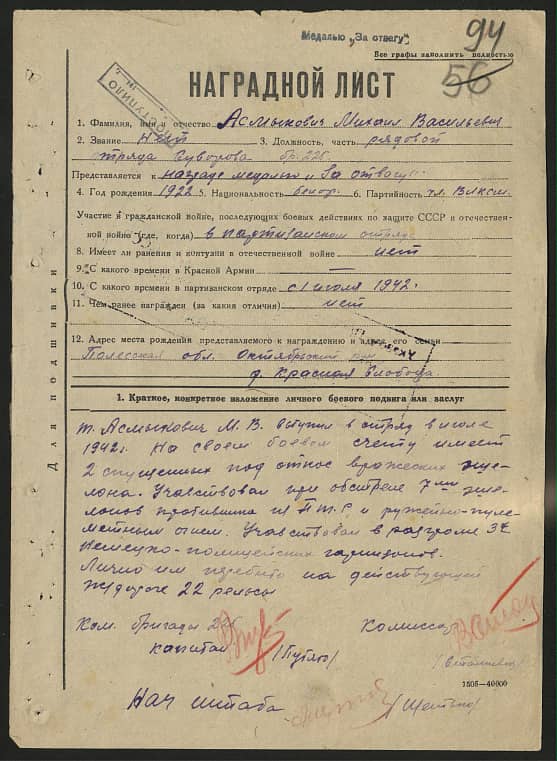 Медалью „За отвагу"
94
Все графы заполнить полностью
56
НАГРАДНОЙ ЛИСТ
1. Фамилия, имя и отчество Асмыкович Михаил Васильевич
2. Звание нет 3. Должность, часть рядовой
отряда Суворова бр. 225
Представляется к награде медалью „За отвагу"
4. Год рождения 1922 5. Национальность белор. 6. Партийность чл. ВЛКСМ
Участие в гражданской войне, последующих боевых действиях по защите СССР и отечествен-
ной войне (где, когда) в партизанском отряде
8. Имеет ли ранения и контузии в отечественной войне нет
9. С какого времени в Красной Армии —
10. С какого времени в партизанском отряде с 1 июля 1942 г.
11. Чем ранее награжден (за какия отличия) нет
12. Адрес места рождения представляемого к награждению и адрес его семьи
Полесская обл. Октябрьский р-н
д. Красная Слобода
Для подшивки
1. Краткое, конкретное изложение личного боевого подвига или заслуг
т. Асмыкович М. В. вступил в отряд в июле
1942 г. На своем боевом счету имеет
2 спущенных под откос вражеских эше-
лона. Участвовал при обстреле 7ми эше-
лонов противника из ПТР и ружейно-пуле-
метным огнем. Участвовал в разгроме 3х
немецко-полицейских гарнизонов.
Лично им перебито на действующей
ж/дороге 22 рельсы
Ком. бригады 225 Комиссар
капитан
Нач штаба
1505—40000